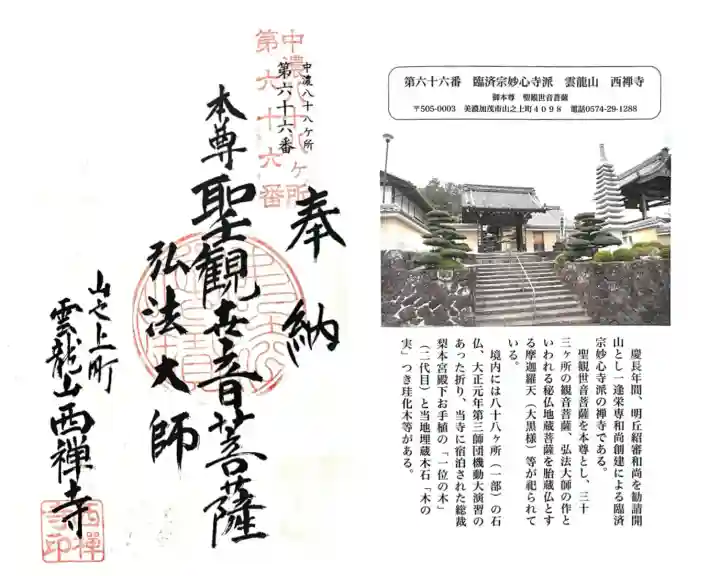 中濃八十八ヶ所
第六十六番
中濃八十八ヶ所
第六十六番
奉納
本尊 聖観世音菩薩
弘法大師
山之上町
雲龍山西禅寺
西禅
寺印
第六十六番 臨済宗妙心寺派 雲龍山 西禅寺
御本尊 聖観世音菩薩
〒505-0003 美濃加茂市山之上町4098 電話0574-29-1288
慶長年間、明丘紹審和尚を勧請開
山とし一逢栄専和尚創建による臨済
宗妙心寺派の禅寺である。
聖観世音菩薩を本尊とし、三十
三ヶ所の観音菩薩、弘法大師の作と
いわれる秘仏地蔵菩薩を胎蔵仏とす
る摩迦羅天（大黒様）等が祀られて
いる。
境内には八十八ヶ所（一部）の石
仏、大正元年第三師団機動大演習の
あった折り、当寺に宿泊された総裁
梨本宮殿下お手植の「一位の木」
（二代目）と当地埋蔵木石「木の
実」つき珪化木等がある。